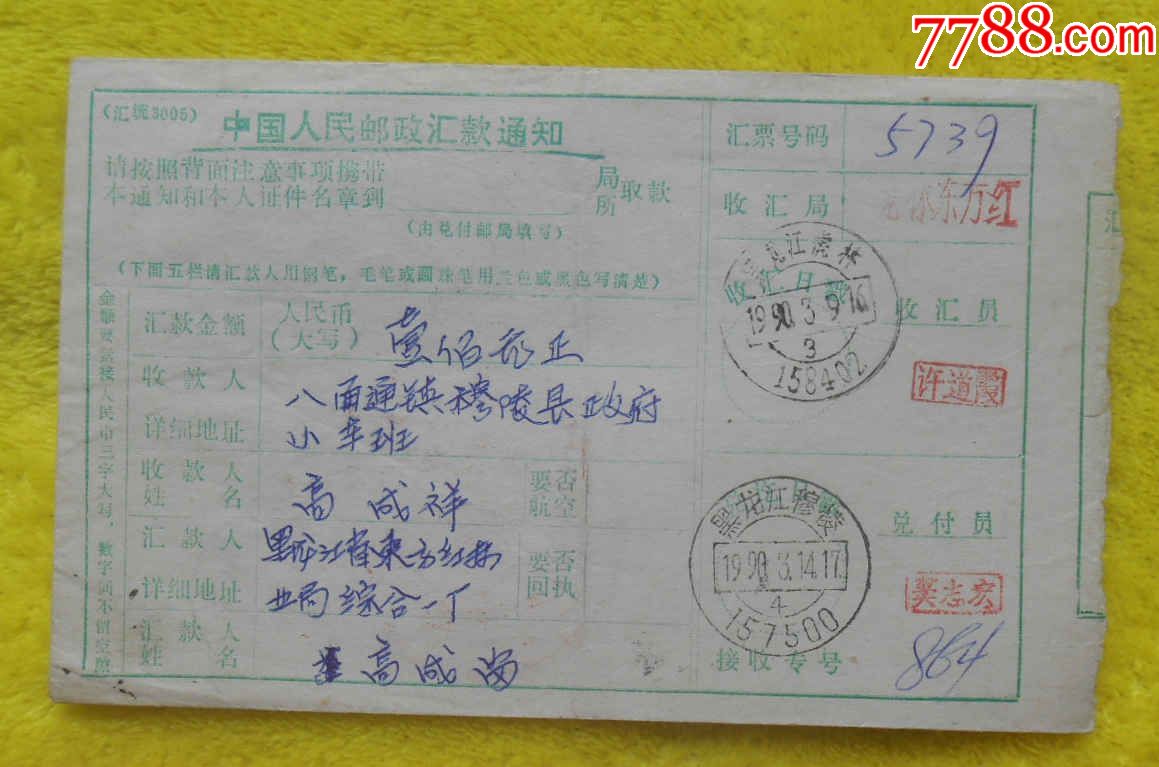 7788.com
(汇统3005)
中国人民邮政汇款通知
请按照背面注意事项携带
本通知和本人证件名章到
局
所
取款
(由兑付邮局填写)
(下面五栏请汇款人用钢笔,毛笔或圆珠笔用兰色或黑色写清楚)
汇款金额
人民币
(大写)
壹佰元正
收款人
详细地址
八面通镇穆陵县政府
小车班
收款人
姓名
高成祥
要否
航空
汇款人
详细地址
黑龙江省东方红林
业局综合一丁
要否
回执
汇款人
姓名
高成
汇票号码
5739
收汇局
东方红
收汇日戳
黑龙江虎林
1990.3.9.16
3
158402
收汇员
许道霞
黑龙江穆棱
1990.3.14.17
4
157500
兑付员
樊志宏
接收专号
864
汇